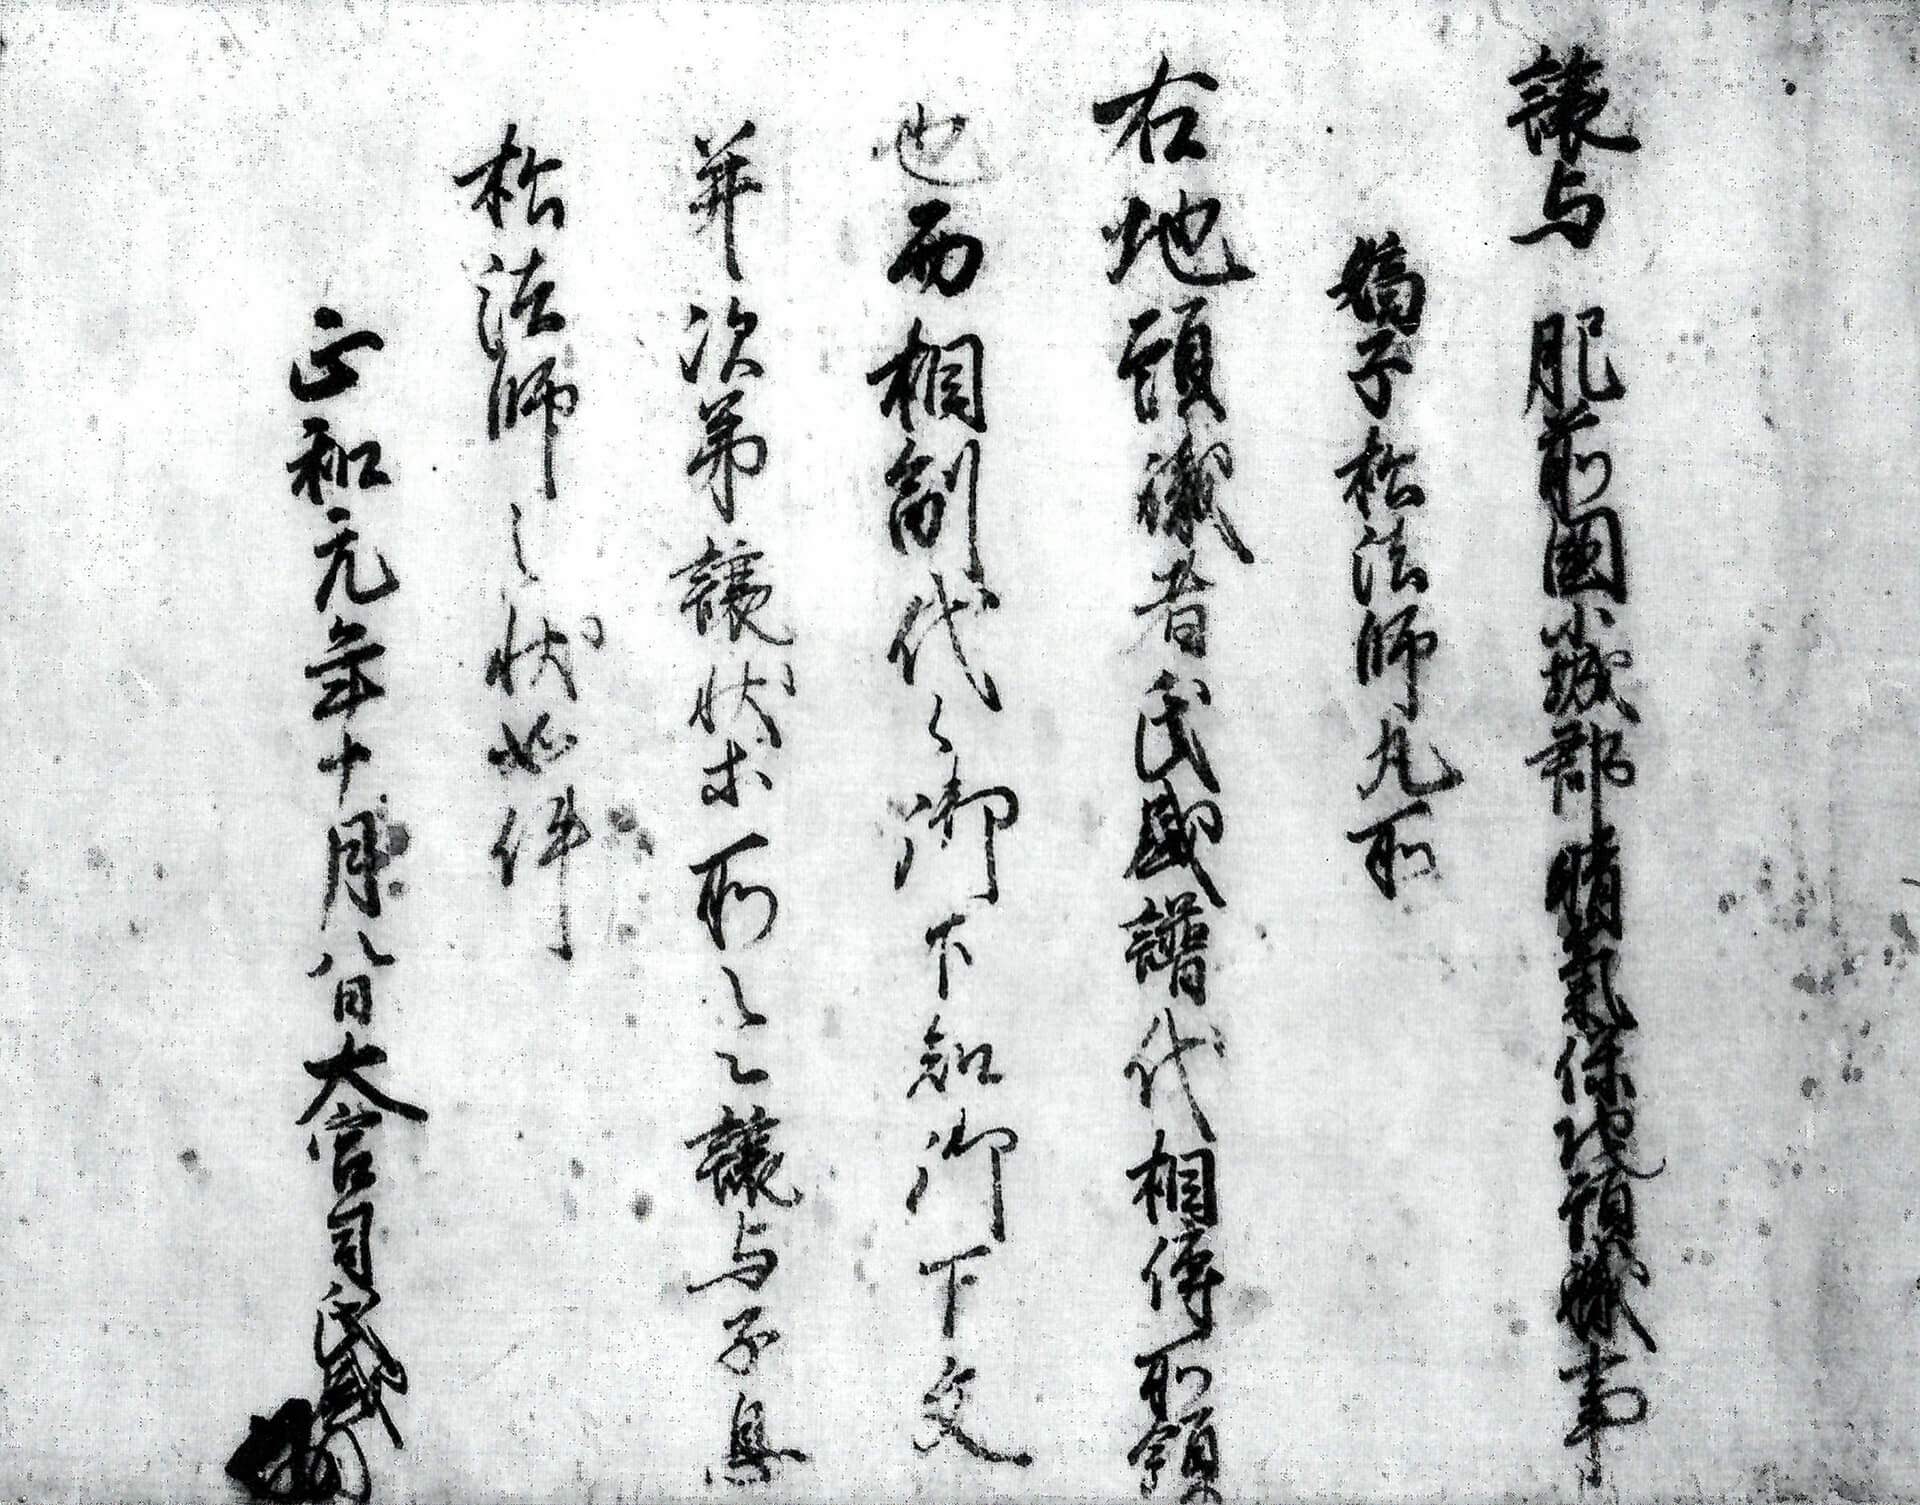 譲与 肥前国小城郡晴氣保地頭職事
嫡子松法師丸所
右地頭職者氏盛譜代相傳所領
也而相副代々御下知御下文
并次第譲状等所之譲与子息
松法師之状如件
正和元年十月八日大宮司氏盛